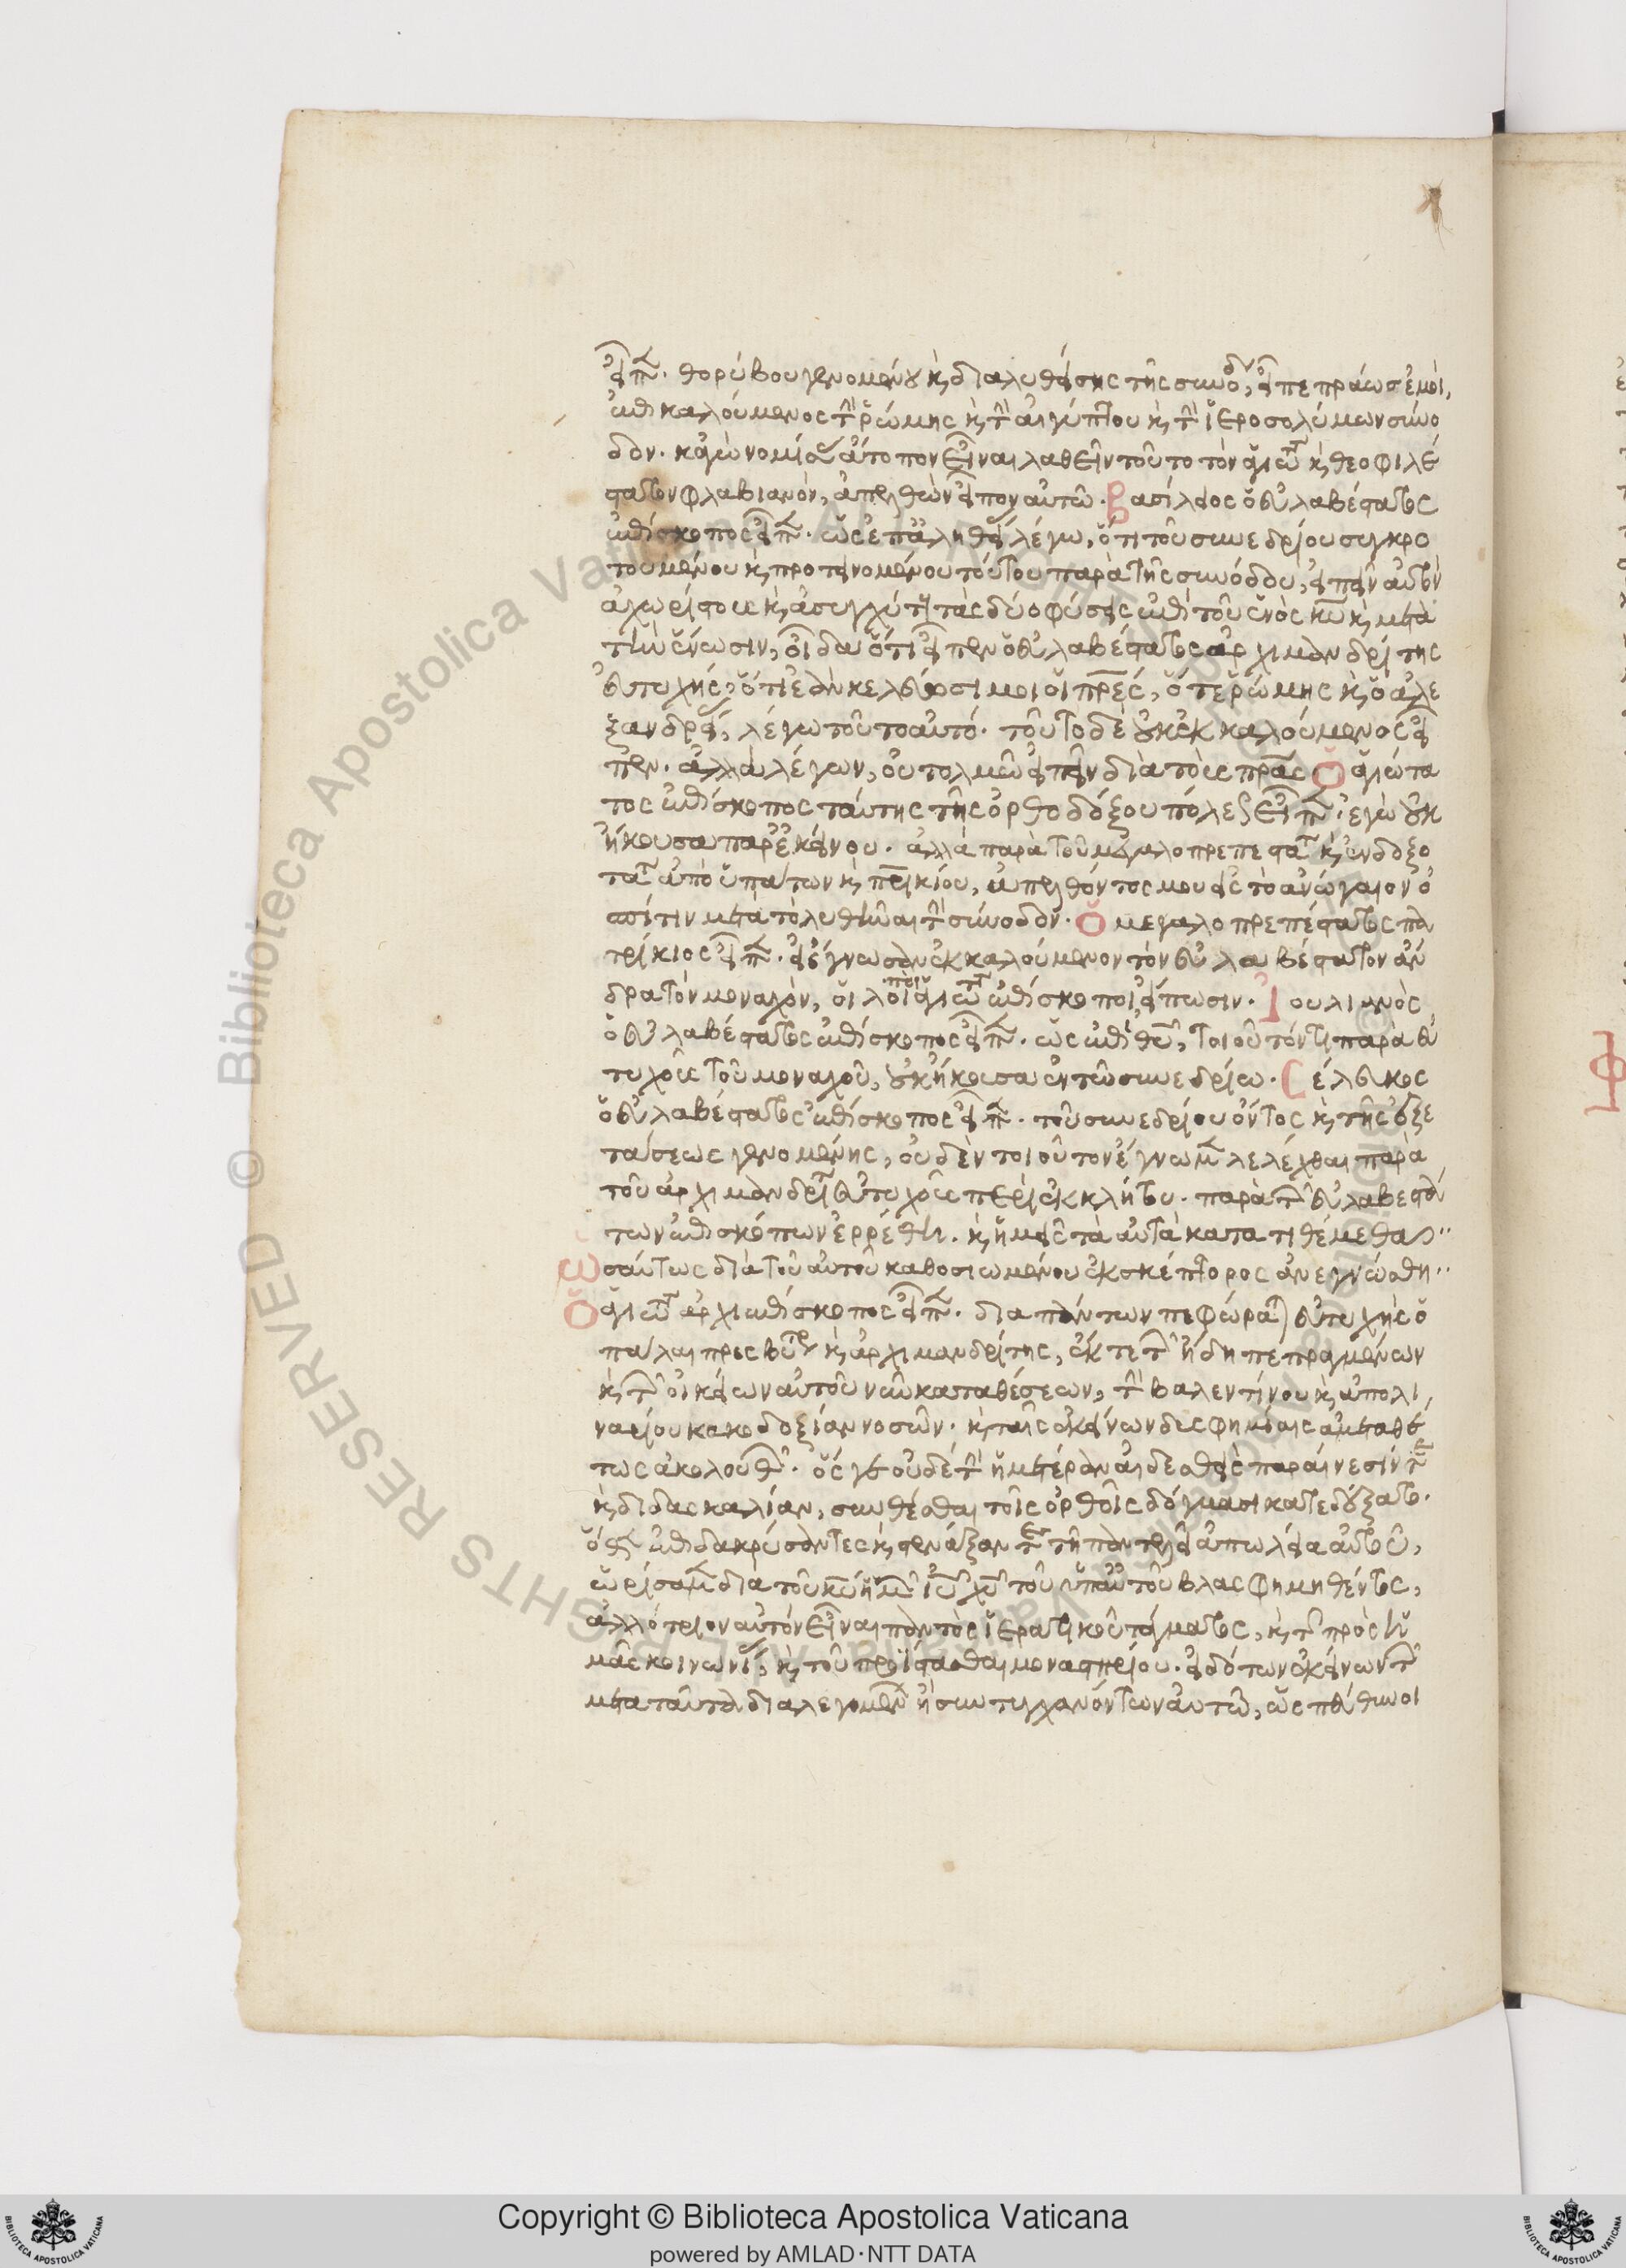 εἶπεν. θορύβου γενομένου καὶ διαλυθείσης τῆς συνόδου, εἶπε πράως ἐμοὶ,
ἐπικαλούμενος τὴν ῥώμης καὶ τὴν αἰγύπτου καὶ τὴν ἱεροσολύμων σύνο
δον. κἀγὼ νομίσας ἄτοπον εἶναι λαθεῖν τοῦτο τὸν ἁγιώτατον καὶ θεοφιλέ
στατον φλαβιανὸν, ἀπελθὼν εἶπον αὐτῶ. Βασίλειος ὁ εὐλαβέστατος
ἐπίσκοπος εἶπεν. ὡς ἐπ ἀληθείας λέγω, ὅτι τοῦ συνεδρίου συγκρο
τουμένου καὶ προτεινομένου τούτου παρὰ τῆς συνόδου, εἰπεῖν αὐτὸν
ἀχωρίστους καὶ ἀσυγχύτους τὰς δύο φύσεις ἐπὶ τοῦ ἑνὸς κυρίου καὶ μετὰ
τὴν ἕνωσιν, οἶδα ὅτι εἶπεν ὁ εὐλαβέστατος ἀρχιμανδρίτης
εὐτυχής, ὅτι ἐὰν κελεύσωσί μοι οἱ πατέρες, ὅ τε ῥώμης καὶ ὁ ἀλε
ξανδρείας, λέγω τοῦτο αὐτό. τοῦτο δὲ οὐκ ἐκκαλούμενος εἶ
πεν. ἀλλὰ λέγων, οὐ τολμῶ εἰπεῖν διὰ τοὺς πατέρας Ὁ ἁγιώτα
τος ἐπίσκοπος ταύτης τῆς ὀρθοδόξου πόλεως εἶπεν. ἐγὼ οὐκ
ἤκουσα παρ ἐκείνου. ἀλλὰ παρὰ τοῦ μεγαλοπρεπεστάτου καὶ ἐνδοξο
τάτου ἀπὸ ὑπάτων καὶ πατρικίου, ἀπελθόντος μου εἰς τὸ ἀνώγαιον ὅ
ἐστιν μετὰ τὸ λυθῆναι τὴν σύνοδον. Ὁ μεγαλοπρεπέστατος πα
τρίκιος εἶπεν. εἰ ἔγνωσαν ἐκκαλούμενον τὸν εὐλαβέστατον ἄν
δρα τὸν μοναχὸν, οἱ λοιποὶ ἁγιώτατοι ἐπίσκοποι, εἴπωσιν. Ἰουλιανὸς
ὁ εὐλαβέστατος ἐπίσκοπος εἶπεν. ὡς ἐπὶ θεοῦ, τοιοῦτόν τι παρὰ εὐ
τυχοῦς τοῦ μοναχοῦ, οὐκ ἤκουσα ἐν τῶ συνεδρίω. Σέλευκος
ὁ εὐλαβέστατος ἐπίσκοπος εἶπεν. τοῦ συνεδρίου ὄντος καὶ τῆς ἐξε
τάσεως γενομένης, οὐδὲν τοιοῦτον ἔγνωμεν λελέχθαι παρὰ
τοῦ ἀρχιμανδρίτου εὐτυχοῦς περὶ ἐκκλήτου. παρὰ τῶν εὐλαβεστά
των ἐπισκόπων ἐρρέθη. καὶ ἡμεῖς τὰ αὐτὰ κατατιθέμεθα
ὡσαύτως διὰ τοῦ αὐτοῦ καθοσιωμένου ἐκσκέπτορος ἀνεγνώσθη
Ὁ ἁγιώτατος ἀρχιεπίσκοπος εἶπεν. διὰ πάντων πεφώραται εὐτυχὴς ὁ
πάλαι πρεσβύτερος καὶ ἀρχιμανδρίτης, ἔκ τε τῶν ἤδη πεπραγμένων
καὶ τῶν οἰκείων αὐτοῦ νῦν καταθέσεων, τὴν βαλεντίνου καὶ ἀπολι
ναρίου κακοδοξίαν νοσῶν. καὶ ταῖς ἐκείνων δυσφημίαις ἀμεταθέ
τως ἀκολουθῶν. ὅς γε οὐδὲ τὴν ἡμετέραν αἰδεσθεὶς παραίνεσίν τε
καὶ διδασκαλίαν, συνθέσθαι τοῖς ὀρθοῖς δόγμασι κατεδέξατο.
ὅθεν ἐπιδακρύσαντες καὶ στενάξαντες τῆ παντελεῖ ἀπωλεία αὐτοῦ,
ὡρίσαμεν διὰ τοῦ κυρίου ἡμῶν ἰησοῦ χριστοῦ τοῦ ὑπ αὐτοῦ βλασφημηθέντος,
ἀλλότριον αὐτὸν εἶναι παντὸς ἱερατικοῦ τάγματος, καὶ τῆς πρὸς ἡ
μᾶς κοινωνίας, καὶ τοῦ προΐστασθαι μοναστηρίου. εἰδότων ἐκείνων τῶν
μετὰ ταῦτα διαλεγομένων ἢ συντυγχανόντων αὐτῶ, ὡς πεύθυνοι